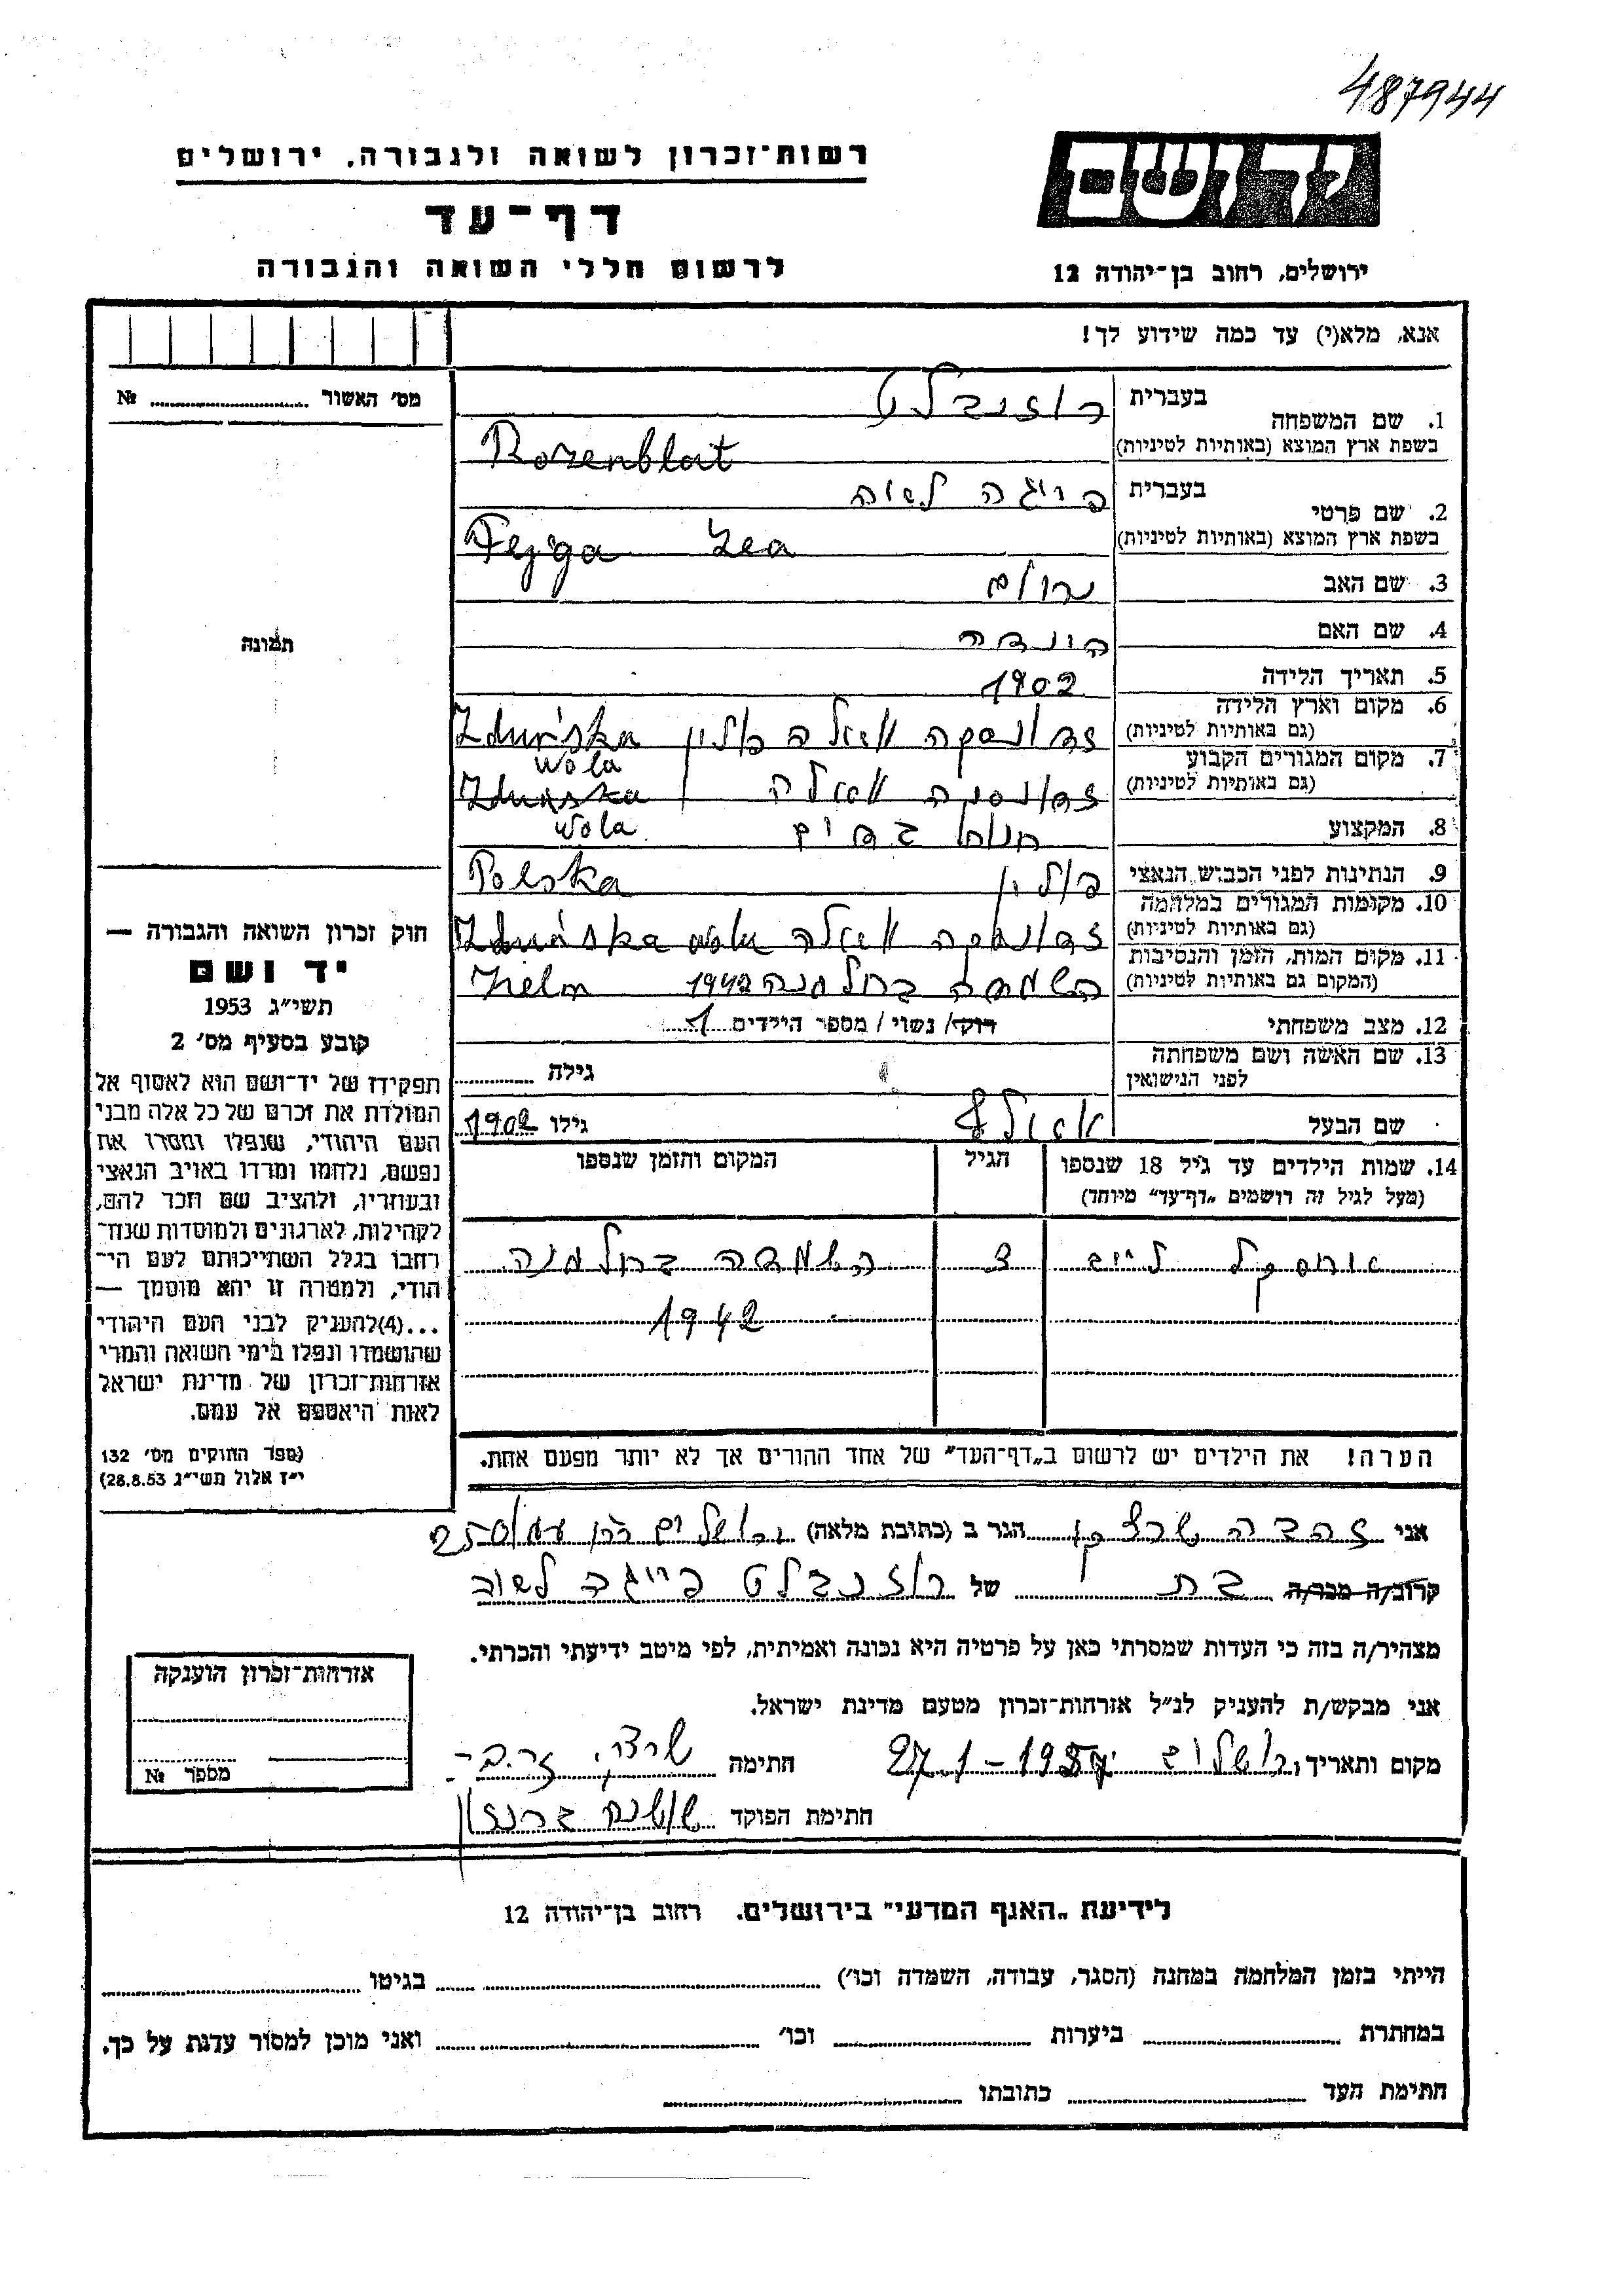 487944
יד ושם
רשות-זכרון לשואה ולגבורה, ירושלים
דף-עד
לרשום חללי השואה והגבורה
ירושלים, רחוב בן-יהודה 12
אנא, מלא(י) עד כמה שידוע לך!
מס' האשור № 
1. שם המשפחה בעברית רוזנבלט
בשפת ארץ המוצא (באותיות לטיניות) Rozenblat
2. שם פרטי בעברית פייגה לאה
בשפת ארץ המוצא (באותיות לטיניות) Fejga Lea
3. שם האב
4. שם האם הינדה
5. תאריך הלידה 1902
6. מקום וארץ הלידה (גם באותיות לטיניות) זדונסקה וואלה פולין Zduńska Wola
7. מקום המגורים הקבוע (גם באותיות לטיניות) זדונסקה וואלה Zduńska Wola
8. המקצוע חנות בדים
9. הנתינות לפני הכבוש הנאצי פולין Polska
10. מקומות המגורים במלחמה (גם באותיות לטיניות) זדונסקה וואלה Zduńska Wola
11. מקום המות, הזמן והנסיבות (המקום גם באותיות לטיניות) השמדה בחלמנה 1942
12. מצב משפחתי רוק/ נשוי / מספר הילדים 1
13. שם האשה ושם משפחתה לפני הנישואין גילה
שם הבעל וואלף גילו 1902
14. שמות הילדים עד גיל 18 שנספו
(מעל לגיל זה רושמים „דף-עד" מיוחד)
הגיל
המקום והזמן שנספו
לייב השמדה בחלמנה
1942
הערה! את הילדים יש לרשום ב„דף-העד" של אחד ההורים אך לא יותר מפעם אחת.
תמונה
חוק זכרון השואה והגבורה —
יד ושם
תשי"ג 1953
קובע בסעיף מס' 2
תפקידו של יד-ושם הוא לאסוף אל
המולדת את זכרם של כל אלה מבני
העם היהודי, שנפלו ומסרו את
נפשם, נלחמו ומרדו באויב הנאצי
ובעוזריו, ולהציב שם וזכר להם,
לקהילות, לארגונים ולמוסדות שנח-
רבו בגלל השתייכותם לעם הי-
הודי, ולמטרה זו יהא מוסמך —
...(4)להעניק לבני העם היהודי
שהושמדו ונפלו בימי השואה והמרי
אזרחות-זכרון של מדינת ישראל
לאות היאספם אל עמם.
(ספר החוקים מס' 132
י"ז אלול תשי"ג 28.8.53)
אני זהבה הגר ב (כתובת מלאה) ירושלים
קרוב/ה מכר/ה בת של רוזנבלט פייגה לאה
מצהיר/ה בזה כי העדות שמסרתי כאן על פרטיה היא נכונה ואמיתית, לפי מיטב ידיעתי והכרתי.
אני מבקש/ת להעניק לנ"ל אזרחות-זכרון מטעם מדינת ישראל.
מקום ותאריך ירושלים חתימה
חתימת הפוקד
אזרחות-זכרון הוענקה
מספר №
לידיעת „האגף המדעי" בירושלים. רחוב בן-יהודה 12
הייתי בזמן המלחמה במחנה (הסגר, עבודה, השמדה וכו') בגיטו
במחתרת ביערות וכו' ואני מוכן למסור עדות על כך.
חתימת העד כתובתו